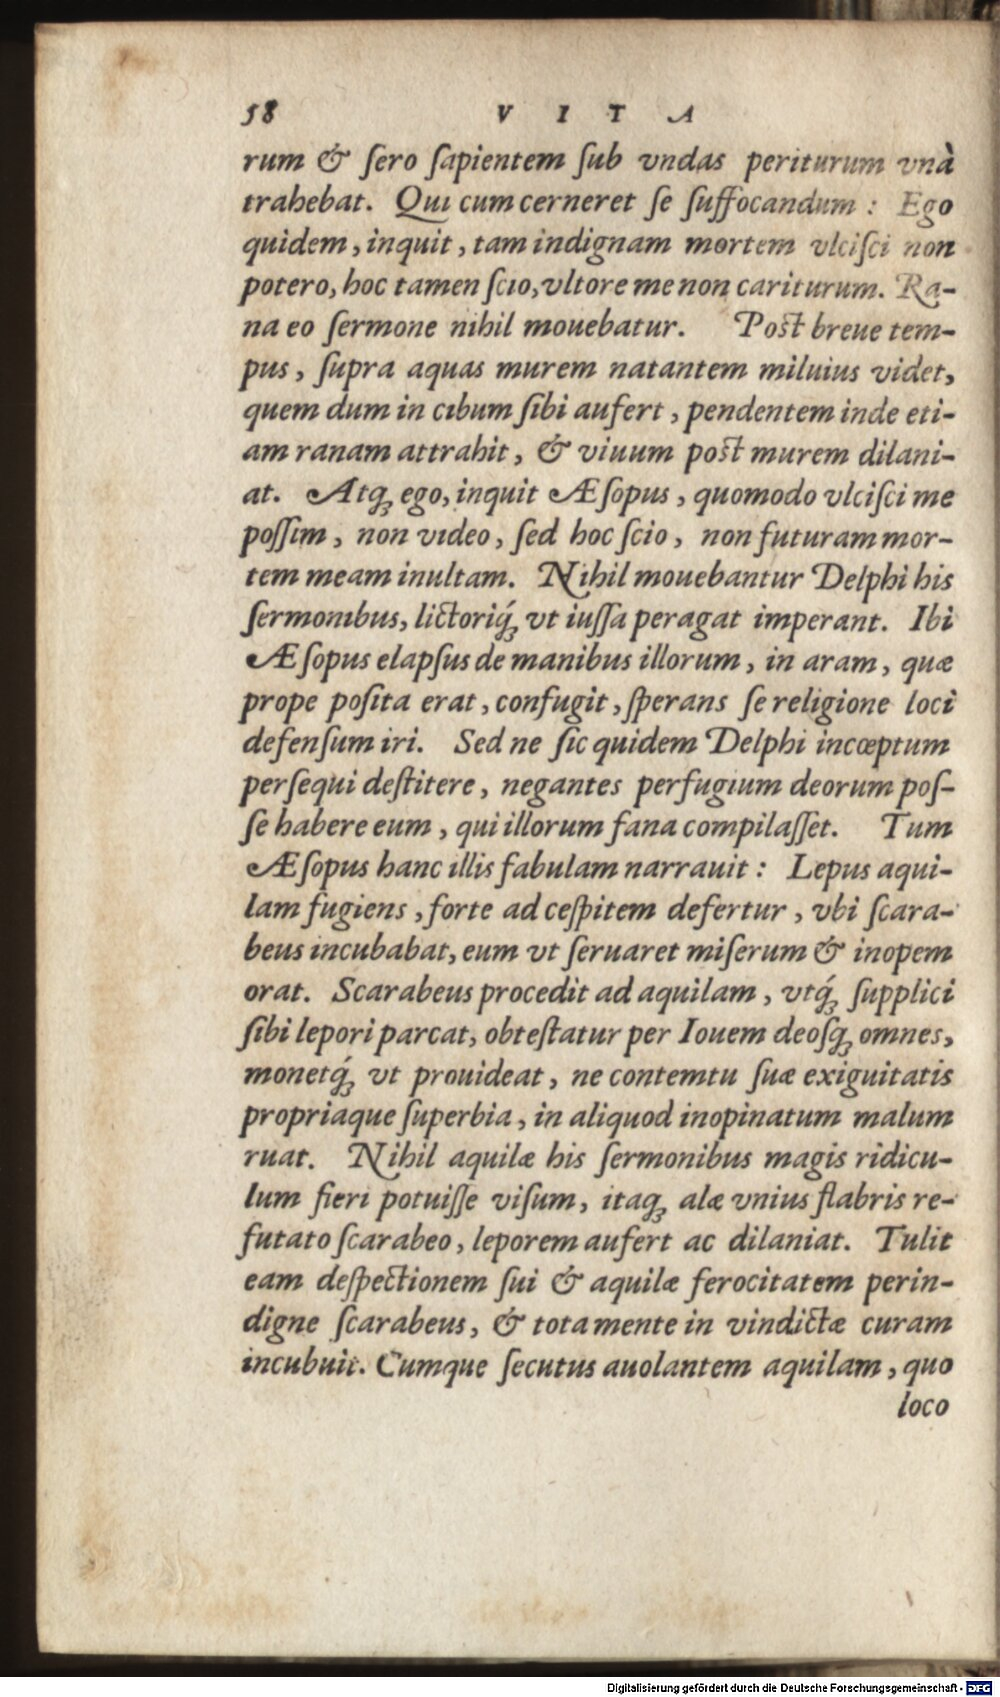 58 VITA
rum & ſero ſapientem ſub vndas periturum vnà
trahebat. Qui cum cerneret ſe ſuffocandum : Ego
quidem, inquit, tam indignam mortem vlciſci non
potero, hoc tamen ſcio, vltore me non cariturum. Ra-
na eo ſermone nihil mouebatur. Poſt breue tem-
pus, ſupra aquas murem natantem miluius videt,
quem dum in cibum ſibi aufert, pendentem inde eti-
am ranam attrahit, & viuum poſt murem dilani-
at. Atq; ego, inquit Æſopus, quomodo vlciſci me
poſſim, non video, ſed hoc ſcio, non futuram mor-
tem meam inultam. Nihil mouebantur Delphi his
ſermonibus, lictoriq́; vt iuſſa peragat imperant. Ibi
Æſopus elapſus de manibus illorum, in aram, quæ
prope poſita erat, confugit, ſperans ſe religione loci
defenſum iri. Sed ne ſic quidem Delphi incœptum
perſequi deſtitere, negantes perfugium deorum poſ-
ſe habere eum, qui illorum fana compilaſſet. Tum
Æſopus hanc illis fabulam narrauit : Lepus aqui-
lam fugiens, forte ad ceſpitem defertur, vbi ſcara-
beus incubabat, eum vt ſeruaret miſerum & inopem
orat. Scarabeus procedit ad aquilam, vtq́; ſupplici
ſibi lepori parcat, obteſtatur per Iouem deoſq; omnes,
monetq́; vt prouideat, ne contemtu ſuæ exiguitatis
propriaque ſuperbia, in aliquod inopinatum malum
ruat. Nihil aquilæ his ſermonibus magis ridicu-
lum fieri potuiſſe viſum, itaq; alæ vnius flabris re-
futato ſcarabeo, leporem aufert ac dilaniat. Tulit
eam deſpectionem ſui & aquilæ ferocitatem perin-
digne ſcarabeus, & tota mente in vindictæ curam
incubuit. Cumque ſecutus auolantem aquilam, quo
loco
Digitalisierung gefördert durch die Deutsche Forschungsgemeinschaft - DFG